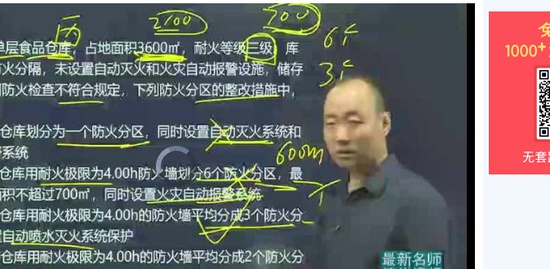 2100
700
单层食品仓库，占地面积3600㎡，耐火等级三级，库
防火分隔，未设置自动灭火和火灾自动报警设施，储存
防火检查不符合规定，下列防火分区的整改措施中，
仓库划分为一个防火分区，同时设置自动灭火系统和
警系统
仓库用耐火极限为4.00h的防火墙划分6个防火分区，最
面积不超过700㎡，同时设置火灾自动报警系统
仓库用耐火极限为4.00h的防火墙平均分成3个防火分
设置自动喷水灭火系统保护
仓库用耐火极限为4.00h的防火墙平均分成2个防火分
6F
3F
600m
最新名师
1000+
无套